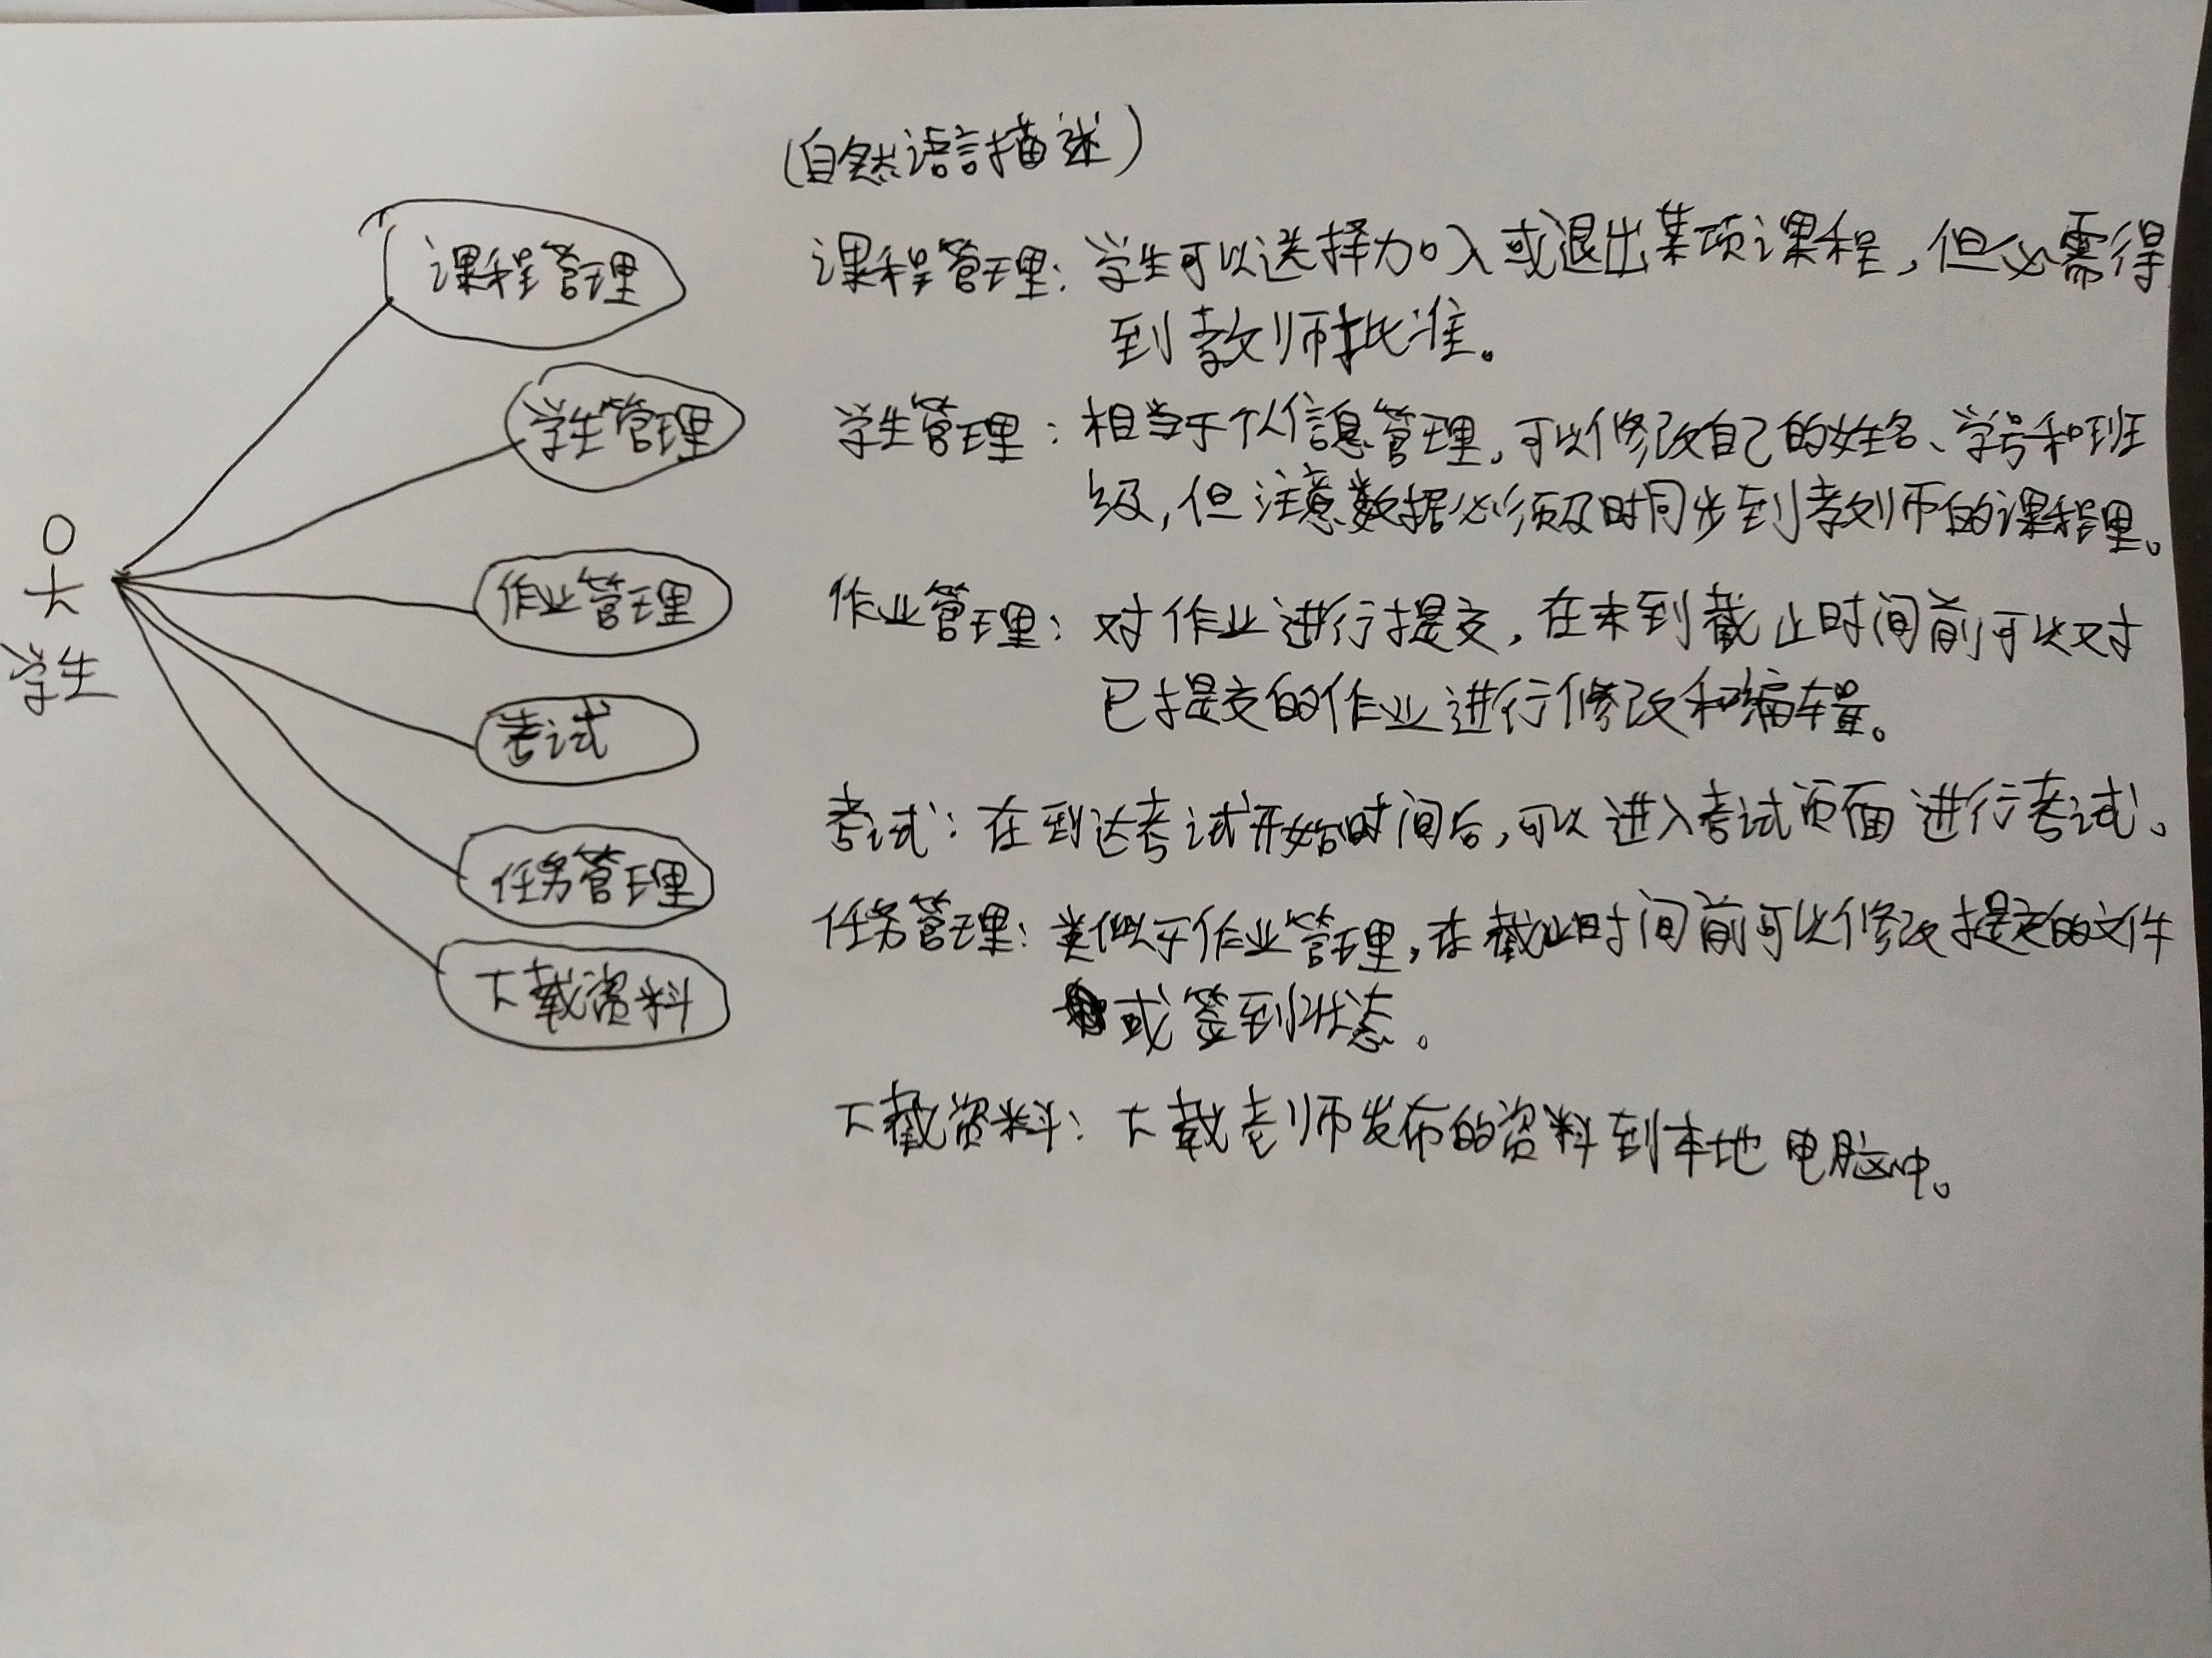 (自然语言描述)
课程管理
学生管理
作业管理
考试
任务管理
下载资料
学生
课程管理：学生可以选择加入或退出某项课程，但必需得
到教师批准。
学生管理：相当于个人信息管理，可以修改自己的姓名、学号和班
级，但注意数据必须及时同步到教师的课程里。
作业管理：对作业进行提交，在未到截止时间前可以对
已提交的作业进行修改和编辑。
考试：在到达考试开始时间后，可以进入考试页面进行考试。
任务管理：类似于作业管理，在截止时间前可以修改提交的文件
或签到状态。
下载资料：下载老师发布的资料到本地电脑中。